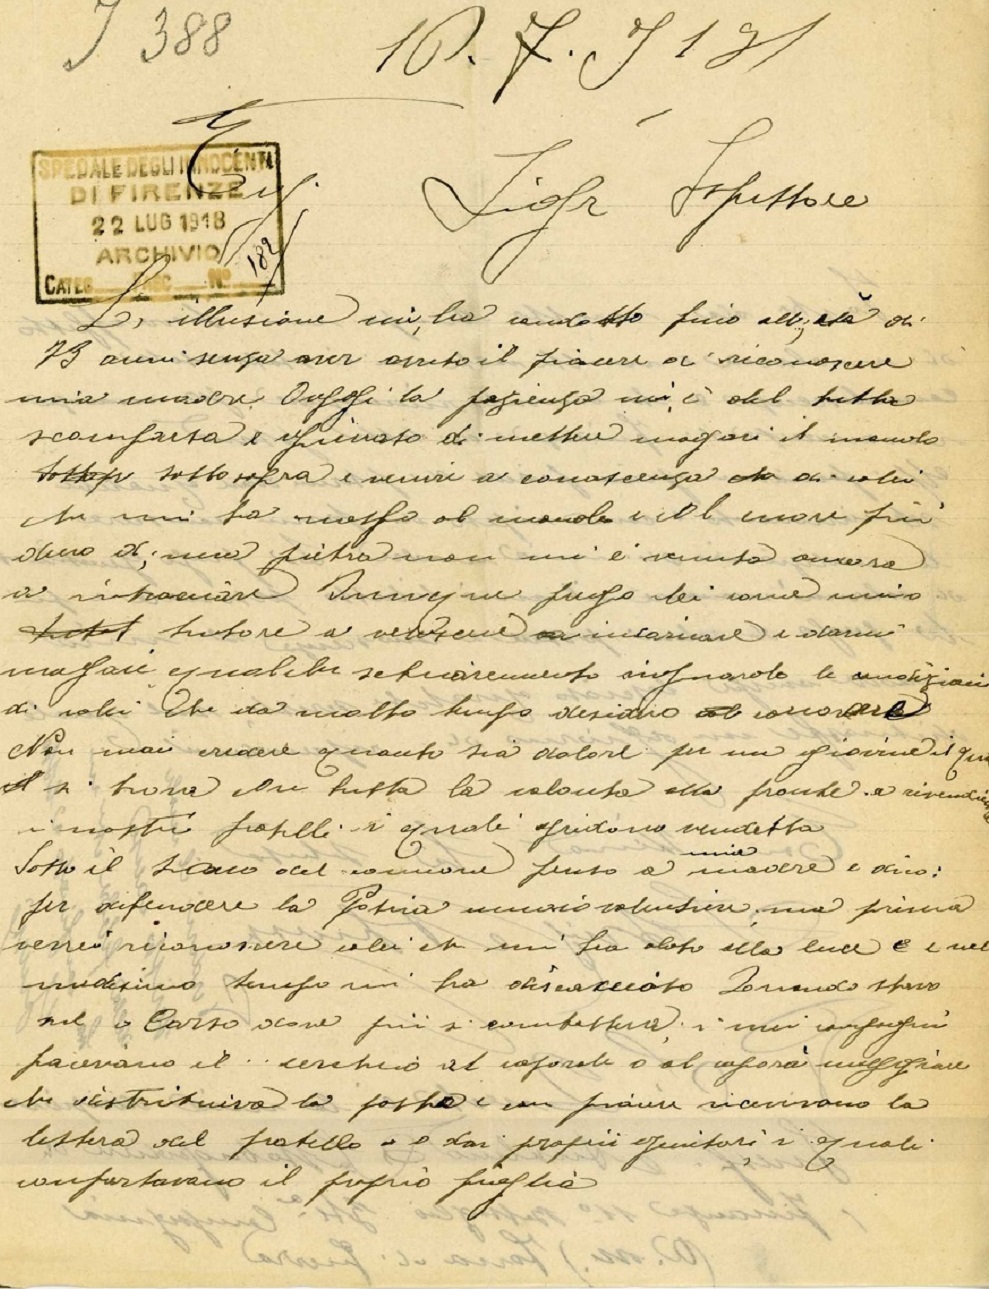 I 388
10. 7. 9
Eg.
Sigr Ispettore
SPEDALE DEGLI INNOCENTI
DI FIRENZE
22 LUG 1918
ARCHIVIO
CATEG FASC Nº 182
L, illusione mi, ha condotto fino all, età di
anni senza aver avuto il piacere di riconoscere
mia madre Oggi la pazienza mi, è del tutta
scomparsa e giurato di mettere magari il mondo
sotto sopra e venire a conoscenza di colei
che mi ha messo al mondo e il cuore più
duro d, una pietra non mi è venuta ancora
a rintracciare Dunque prego lei come mio
tutore a e darmi
magari qualche schiarimento riguardo le condizioni
di colei che da molto tempo desidero conoscere
Non mai credere quanto sia dolore per un giovine il
si trova con tutta la volontà alla fronte a
i nostri fratelli i quali gridono vendetta
Sotto il tuono del cannone penso a mia madre e dico:
per difendere la Patria muoio volentieri ma prima
verrei riconoscere colei che mi ha dato alla luce e e nel
medesimo tempo mi ha discacciato stavo
sul Carso dove più si combatteva i miei compagni
facevano il cerchio al caporale o al caporal maggiore
che distribuiva la posta e con piacere ricevivano la
lettera del fratello o dai proprii genitori i quali
confortavano il proprio figlio